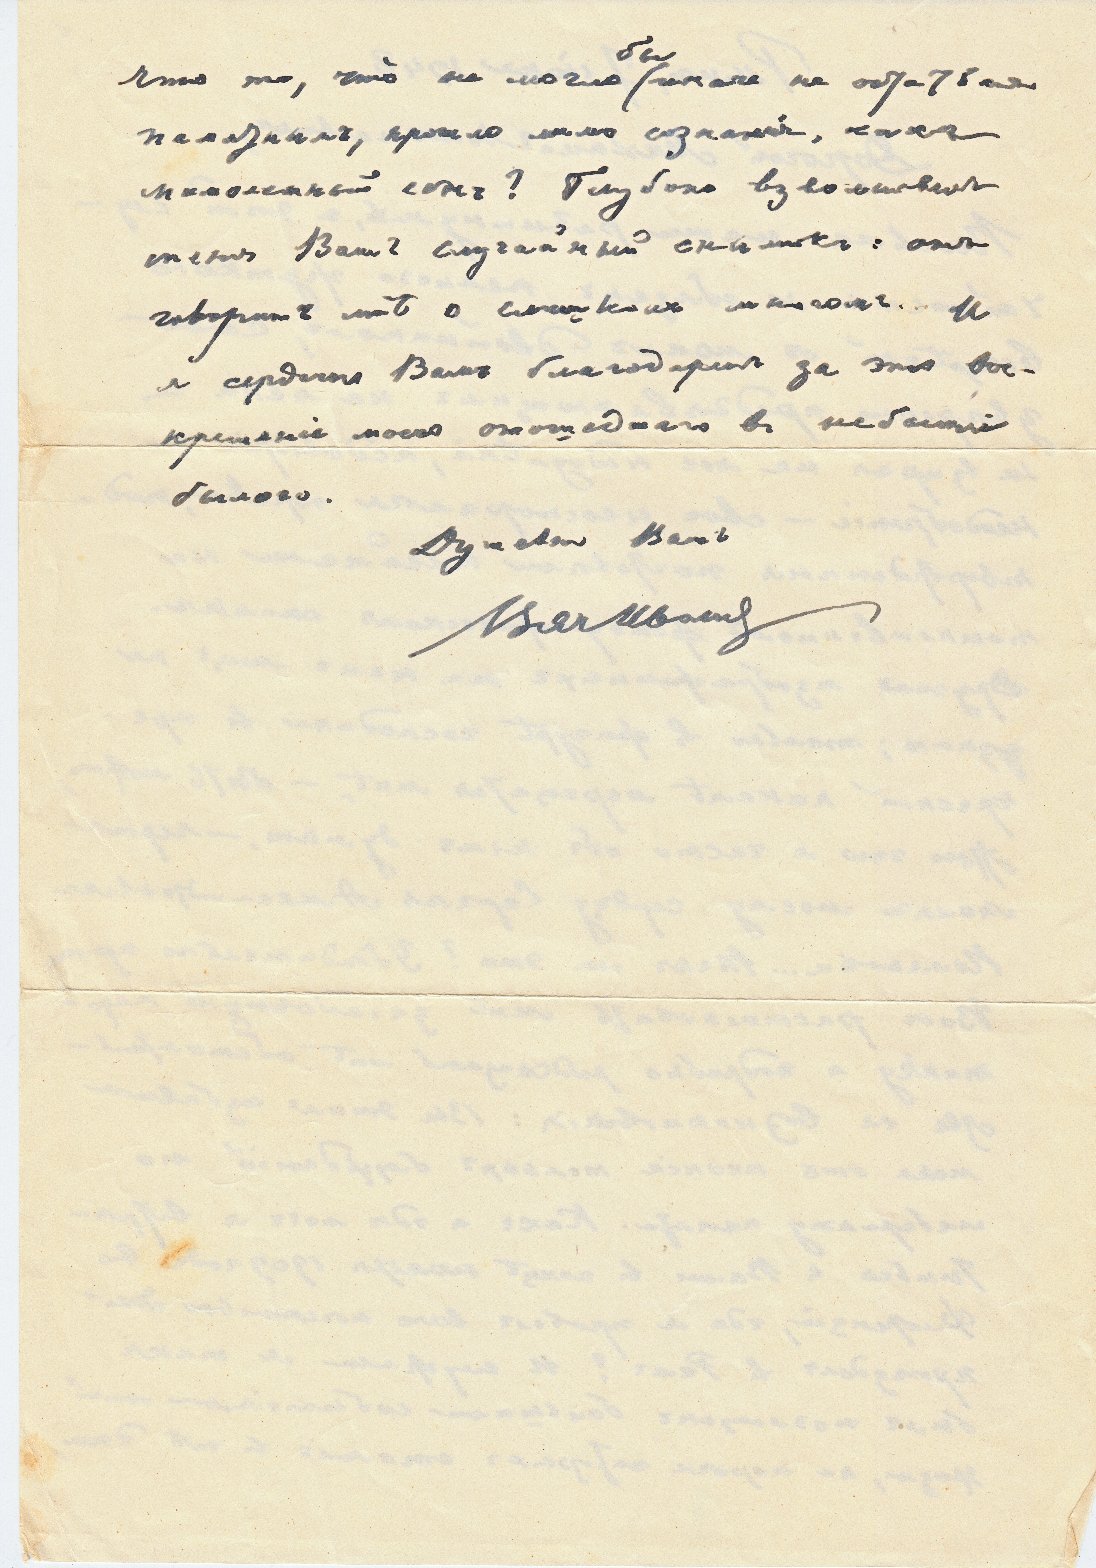 бы
что то, что не могло иначе не остаться
памятнымъ, прошло мимо сознанія, какъ
мимолетный сонъ? Глубоко взволновалъ
меня Вашъ случайный снимокъ: онъ
говоритъ мнѣ о слишкомъ многомъ... И
я сердечно Васъ благодарю за это вос-
крешеніе моего отошедшаго въ небытіе
былого.
Душевно Вашъ
Вяч Иванов